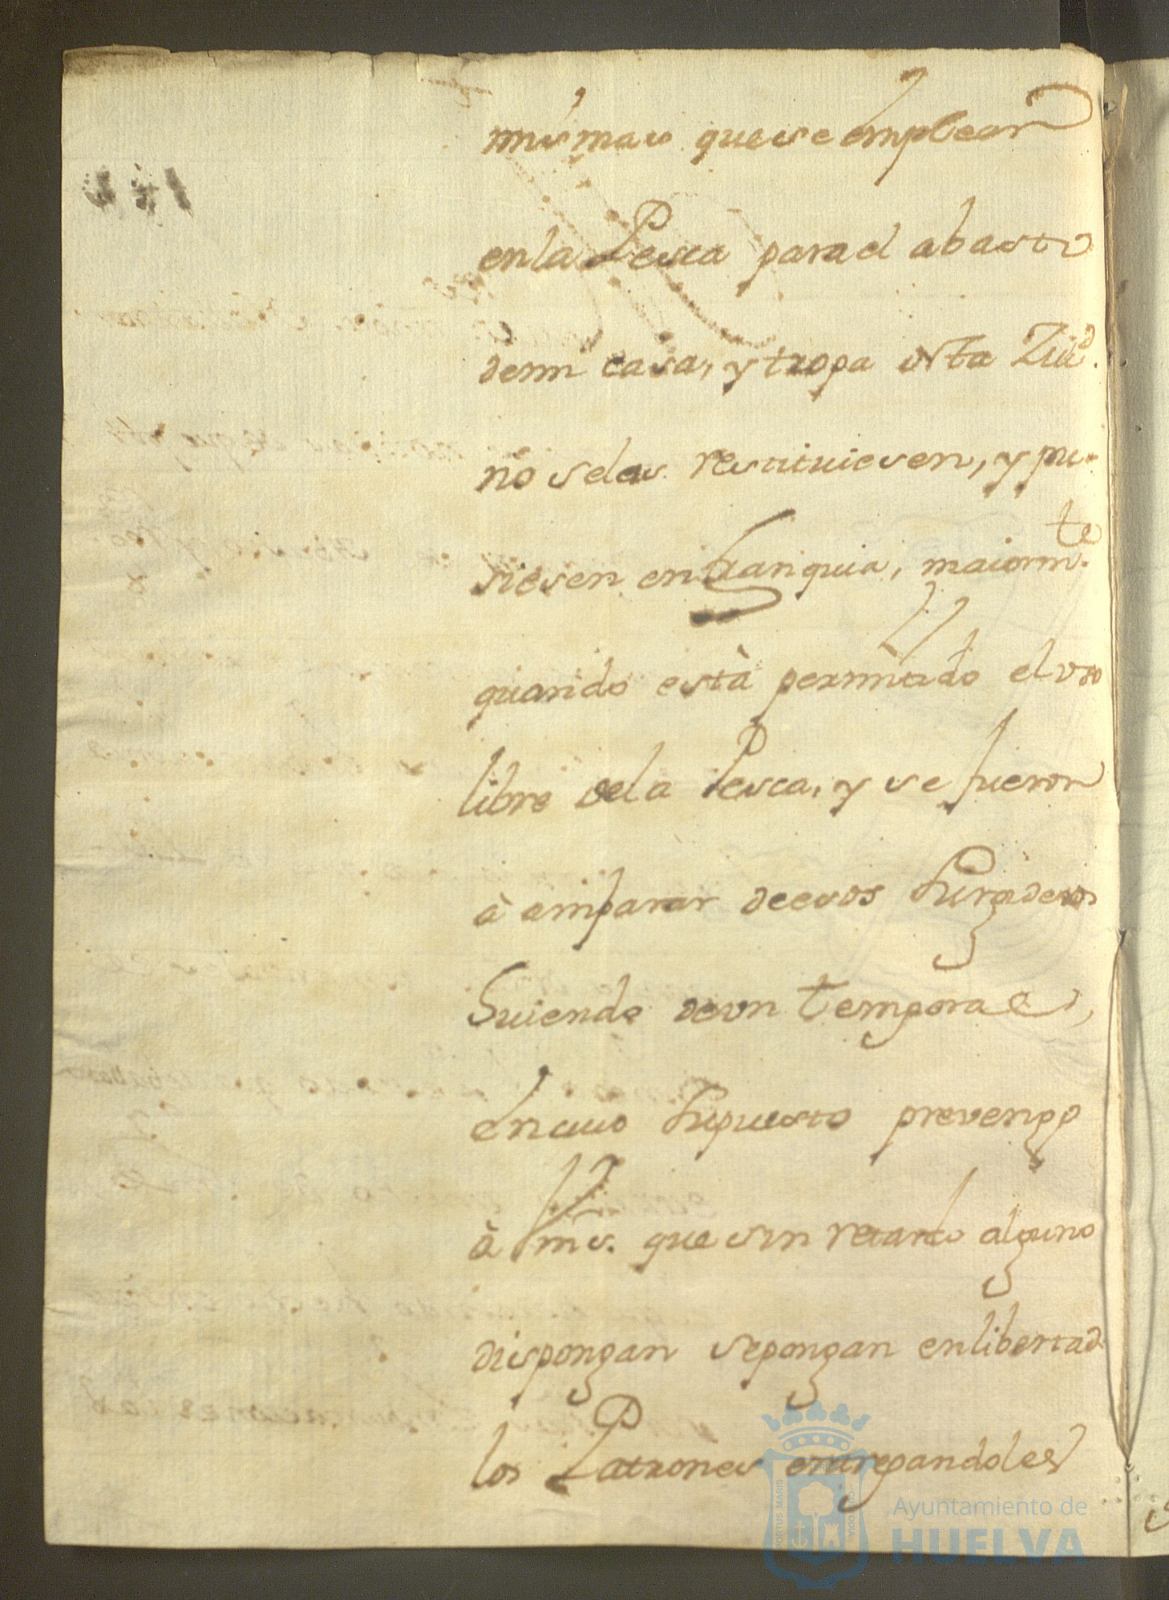 mismas que se emplear
en la Pesca para el abasto
de mi casa, y tropa de esta Ziud.
no se las restituiesen, y pu-
siesen en franquia, maiorm.te
quando està permitido el vso
libre dela Pesca, y se fueron
à amparar de esos Surgideros
huiendo de vn temporal,
en cuio supuesto prevengo
à Vms. que sin retardo alguno
dispongan se pongan en libertad
los Patrones entregandoles
Ayuntamiento de
HUELVA